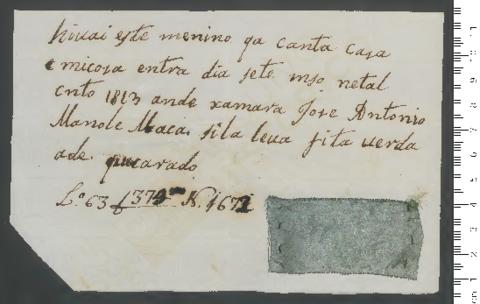 hiuai este menino qa canta casa
e micosa entra dia sete mso netal
cnto 1813 ande xamara Jose Antonio
Manole Maca. fila leua fita uerda
ade. qucarado
Lº 63 f 379 N. 1671